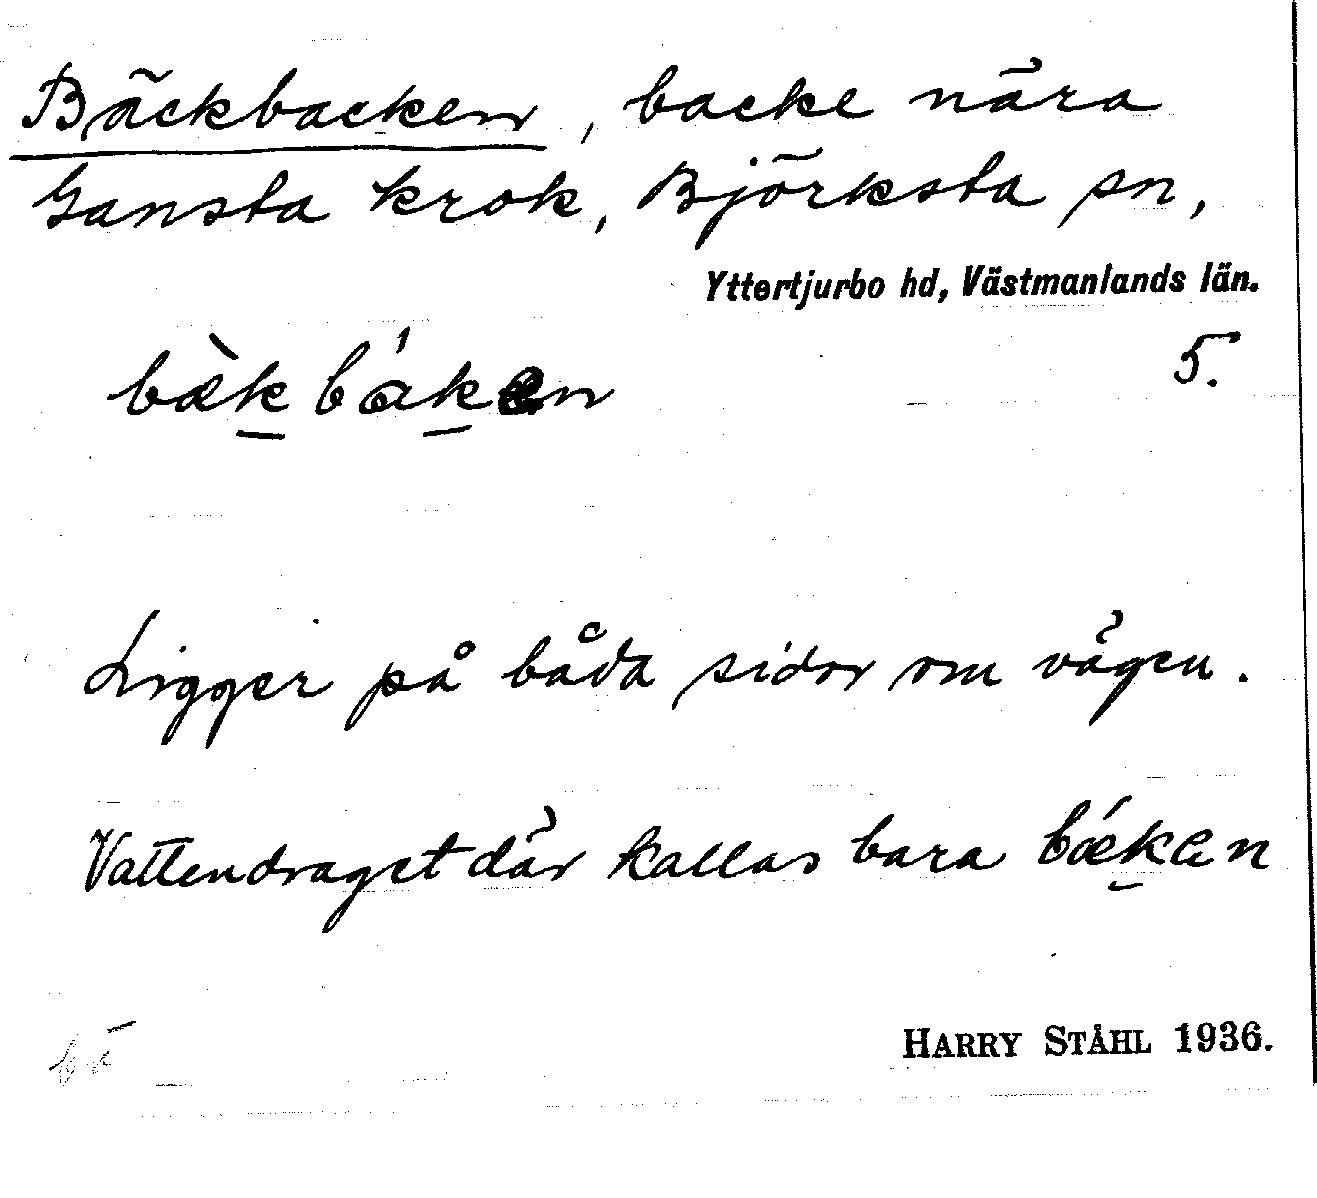 Bäckbacken, backe nära
Gansta krok, Björksta sn,
Yttertjurbo hd, Västmanlands län.
5.
bæ̀k̠bák̠en
Ligger på båda sidor om vägen.
Vattendraget där kallas bara bǽk̠en
HARRY STÅHL 1936.